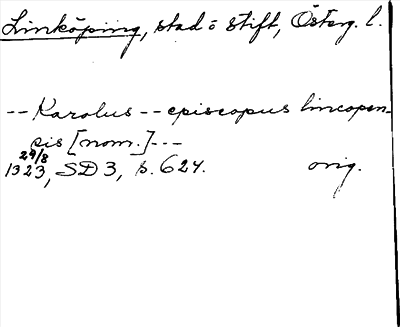 Linköping, stad o stift, Österg. l.
-- Karolus -- episcopus lincopen-
sis [nom.] ---
29/8
1323, SD 3, s. 624. orig.